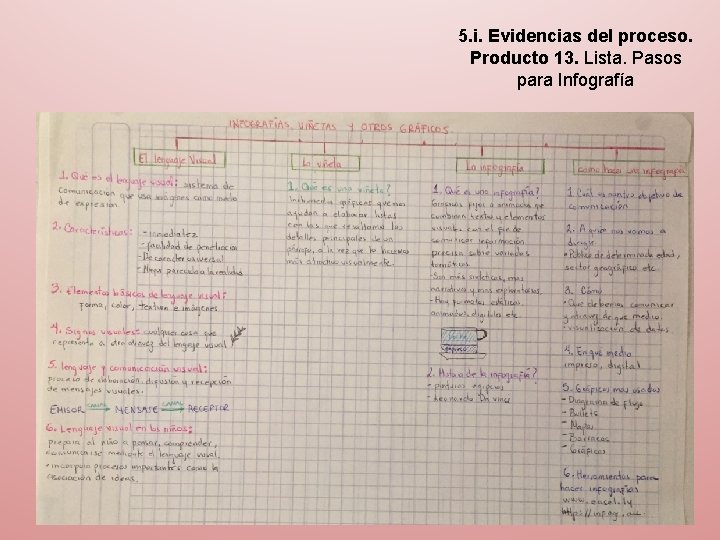 5. i. Evidencias del proceso.
Producto 13. Lista. Pasos
para Infografía
INFOGRAFÍAS, VIÑETAS Y OTROS GRÁFICOS.
El lenguaje Visual
1. Qué es el lenguaje visual: sistema de
comunicación que usa imágenes como medio
de expresión.
2. Características: - inmediatez
- facilidad de penetración
- De caracter universal
- Muy parecida a la realidad
3. Elementos básicos de lenguaje visual:
Forma, color, textura e imágenes.
4. Signos visuales: cualquier cosa que
representa a otra através del lengeje visual
5. lenguaje y comunicación visual:
proceso de elaboración, difusión y recepción
de mensajes visuales.
EMISOR CANAL MENSAJE CANAL RECEPTOR
6. Lenguaje visual en los niños:
prepara al niño a pensar, comprender,
comunicarse mediante el lenguaje visual.
incorpora procesos importantes como la
asociación de ideas.
La viñeta
1. Qué es una viñeta?
Instrumento gráficos que nos
ayudan a elaborar listas
con las que resaltamos los
detalles principales de un
párrafo, a la vez que lo hacemos
más atractivo visualmente.
La infografía
1. Qué es una infografía?
combinan textos y elementos
visuales con el fin de
comunicar información
precisa sobre variadas
temáticas.
- Son más sintéticas, mas
narrativa y mas exploratorias.
- Hay formatos estáticos,
animados digitales etc.
2. Historia de la infografía?
- pinturas egipcias
- Leonardo Da vinci
como hacer una infografía
1. Cuál es nuestro objetivo de
comunicación
2. A quien nos vamos a
dirigir
• Publico de determinada edad,
sector geográfico etc.
3. Cómo
• Que deberías comunicar
y através de que medio.
• visualización de datos
4. En qué medio
impreso, digital
5. Gráficos mas usados
- Diagrama de flujo
- Bullets
- Mapas
- Barras
- Gráficos
6. Herramientas para
hacer infografías
www.easel.ly